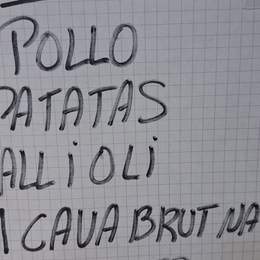 POLLO
PATATAS
ALLiOLi
1 CAVA BRUT NA